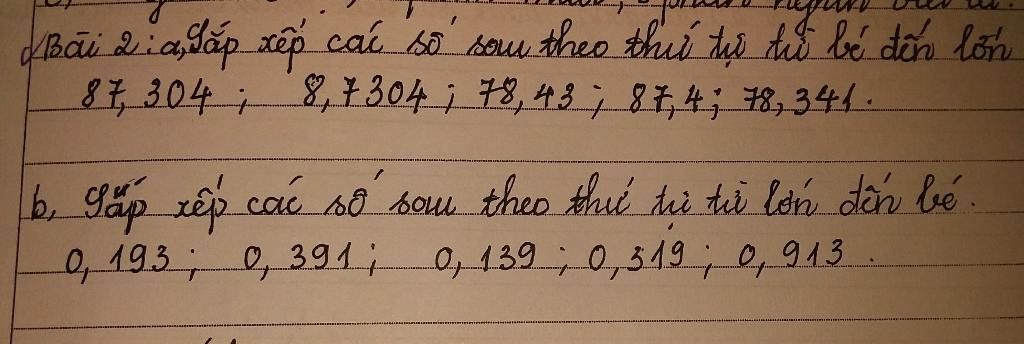 Bài 2: a, Sắp xếp các số sau theo thứ tự từ bé đến lớn
87,304 ; 8,7304 ; 78,43 ; 87,4 ; 78,341.
b, Sắp xếp các số sau theo thứ tự từ lớn đến bé.
0,193 ; 0,391 ; 0,139 ; 0,319 ; 0,913.